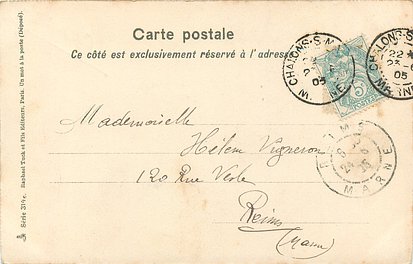 Carte postale
Ce côté est exclusivement réservé à l'adresse
CHALONS-S-M
22
23
05
MARNE
CHALONS-S
22
23-6
05
MARNE
5
Mademoiselle
Hélène Vigneron
120 Rue Vesle
Reims
(Marne)
REIMS
MARNE
Série 31 Raphael Tuck et Fils Editeurs, Paris. Un mot à la poste (Déposé).